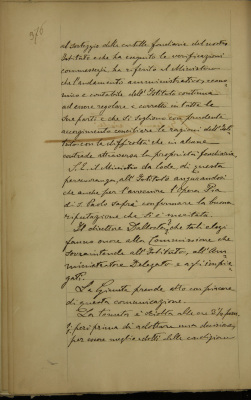 380
al conteggio delle cartelle fondiarie del nostro
Istituto e che ha eseguito le verificazioni
commessegli ha riferito al Ministero
che l'andamento amministrativo, econo-
mico e contabile dell'Istituto continua
ad essere regolare e corretto in tutte le
sue parti e che si sogliono con prudente
accorgimento conciliare le ragioni dell'Isti-
tuto con le difficoltà che in alcune
contrade attraversa la proprietà fondiaria
S. E. il Ministro da lode di questa
perseveranza, all'Istituto augurandosi
che anche per l'avvenire l'Opera Pia
di S. Paolo saprà confermare la buona
riputazione che si è meritata.
Il direttore che tali elogi
fanno onore alla Commissione che
sovraintende all'Istituto, all'Am-
ministratore Delegato e agli impie-
gati.
La Giunta prende atto con piacere
di questa comunicazione.
La seduta è sciolta alle ore
prima di adottare una decisione
per essere meglio edotti delle condizioni